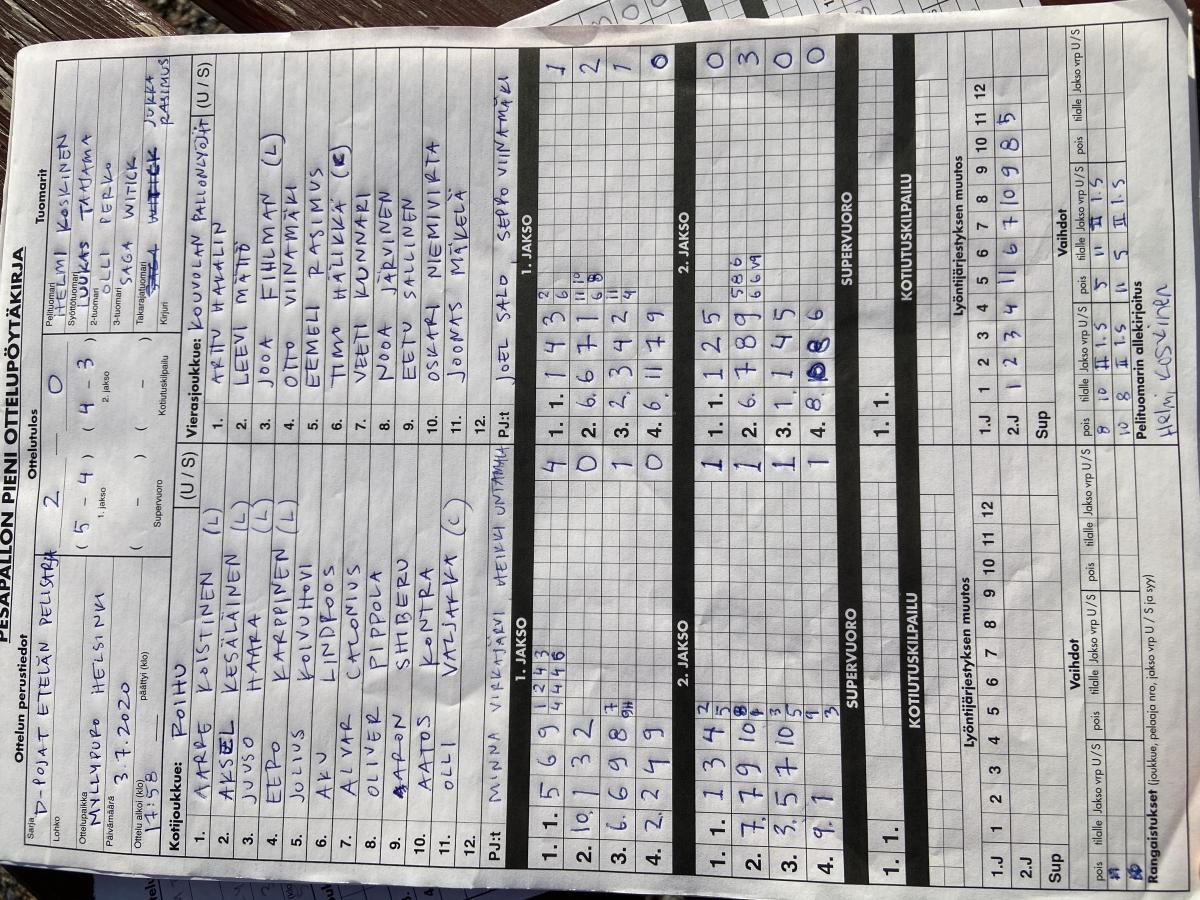 PESÄPALLON PIENI OTTELUPÖYTÄKIRJA
Ottelun perustiedot
Sarja D-POJAT ETELÄN PELISARJA
Lohko
Ottelupaikka MYLLYPURO HELSINKI
Päivämäärä 3.7.2020
Ottelu alkoi (klo) 17:58 päättyi (klo)
Ottelutulos
2 0
( 5 - 4 ) ( 4 - 3 )
1. jakso 2. jakso
( - ) ( - )
Supervuoro Kotiutuskilpailu
Tuomarit
Pelituomari HELMI KOSKINEN
Syöttötuomari LUUKAS TAAJAMAA
2-tuomari OLLI PERKO
3-tuomari SAGA WITICK
Takarajatuomari
Kirjuri JUKKA RASIMUS
Kotijoukkue: ROIHU (U / S)
1. AARRE KOISTINEN (L)
2. AKSEL KESÄLÄINEN (L)
3. JUUSO HAARA (L)
4. EERO KARPPINEN (L)
5. JULIUS KOIVUHOVI
6. AKU LINDROOS
7. ALVAR CALONIUS
8. OLIVER PIPPOLA
9. AARON SHIBERU
10. AATOS KONTRA
11. OLLI VALJAKKA (C)
12.
PJ:t MINNA VIRKAJÄRVI HEIKKI UNTAMALA
Vierasjoukkue: KOUVOLAN PALLONLYÖJÄT (U / S)
1. ARTTU HAKALIN
2. LEEVI MÄTTÖ
3. JOOA FIHLMAN (L)
4. OTTO VIINAMÄKI
5. EEMELI RASIMUS
6. TIMO HÄLIKKÄ (C)
7. VEETI KUNNARI
8. NOOA JÄRVINEN
9. EETU SALLINEN
10. OSKARI NIEMIVIRTA
11. JOONAS MÄKELÄ
12.
PJ:t JOEL SALO, SEPPO VIINAMÄKI
1. JAKSO
1. 1. 5 6 9 1 2 4 3 4
4 4 4 6
2. 10. 1 3 2 0
3. 6. 6 9 8 7 1
4. 2. 2 4 9 0
2. JAKSO
1. 1. 1 3 4 2 1
5
2. 7. 7 9 10 1
3. 3. 5 7 10 3 1
5
4. 9. 1 9 1
3
SUPERVUORO
1. 1.
KOTIUTUSKILPAILU
1. JAKSO
1. 1. 1 4 3 2 1
6
2. 6. 6 7 1 11 10 2
6 8
3. 2. 3 4 2 11 1
4
4. 6. 11 7 9 0
2. JAKSO
1. 1. 1 2 5 0
2. 6. 7 8 9 5 8 6 3
3. 1. 1 4 5 0
4. 8. 8 6 0
SUPERVUORO
1. 1.
KOTIUTUSKILPAILU
Lyöntijärjestyksen muutos
1.J 1 2 3 4 5 6 7 8 9 10 11 12
2.J
Sup
Vaihdot
pois tilalle Jakso vrp U / S pois tilalle Jakso vrp U / S pois tilalle Jakso vrp U / S
Rangaistukset (joukkue, pelaaja nro, jakso vrp U / S ja syy)
Lyöntijärjestyksen muutos
1.J 1 2 3 4 5 6 7 8 9 10 11 12
2.J 1 2 3 4 11 6 7 10 9 8 5
Sup
Vaihdot
pois tilalle Jakso vrp U / S pois tilalle Jakso vrp U / S pois tilalle Jakso vrp U / S
8 10 II 1.S 5 11 II 1.S
10 8 II 1.S 11 5 II 1.S
Pelituomarin allekirjoitus
Helmi Koskinen